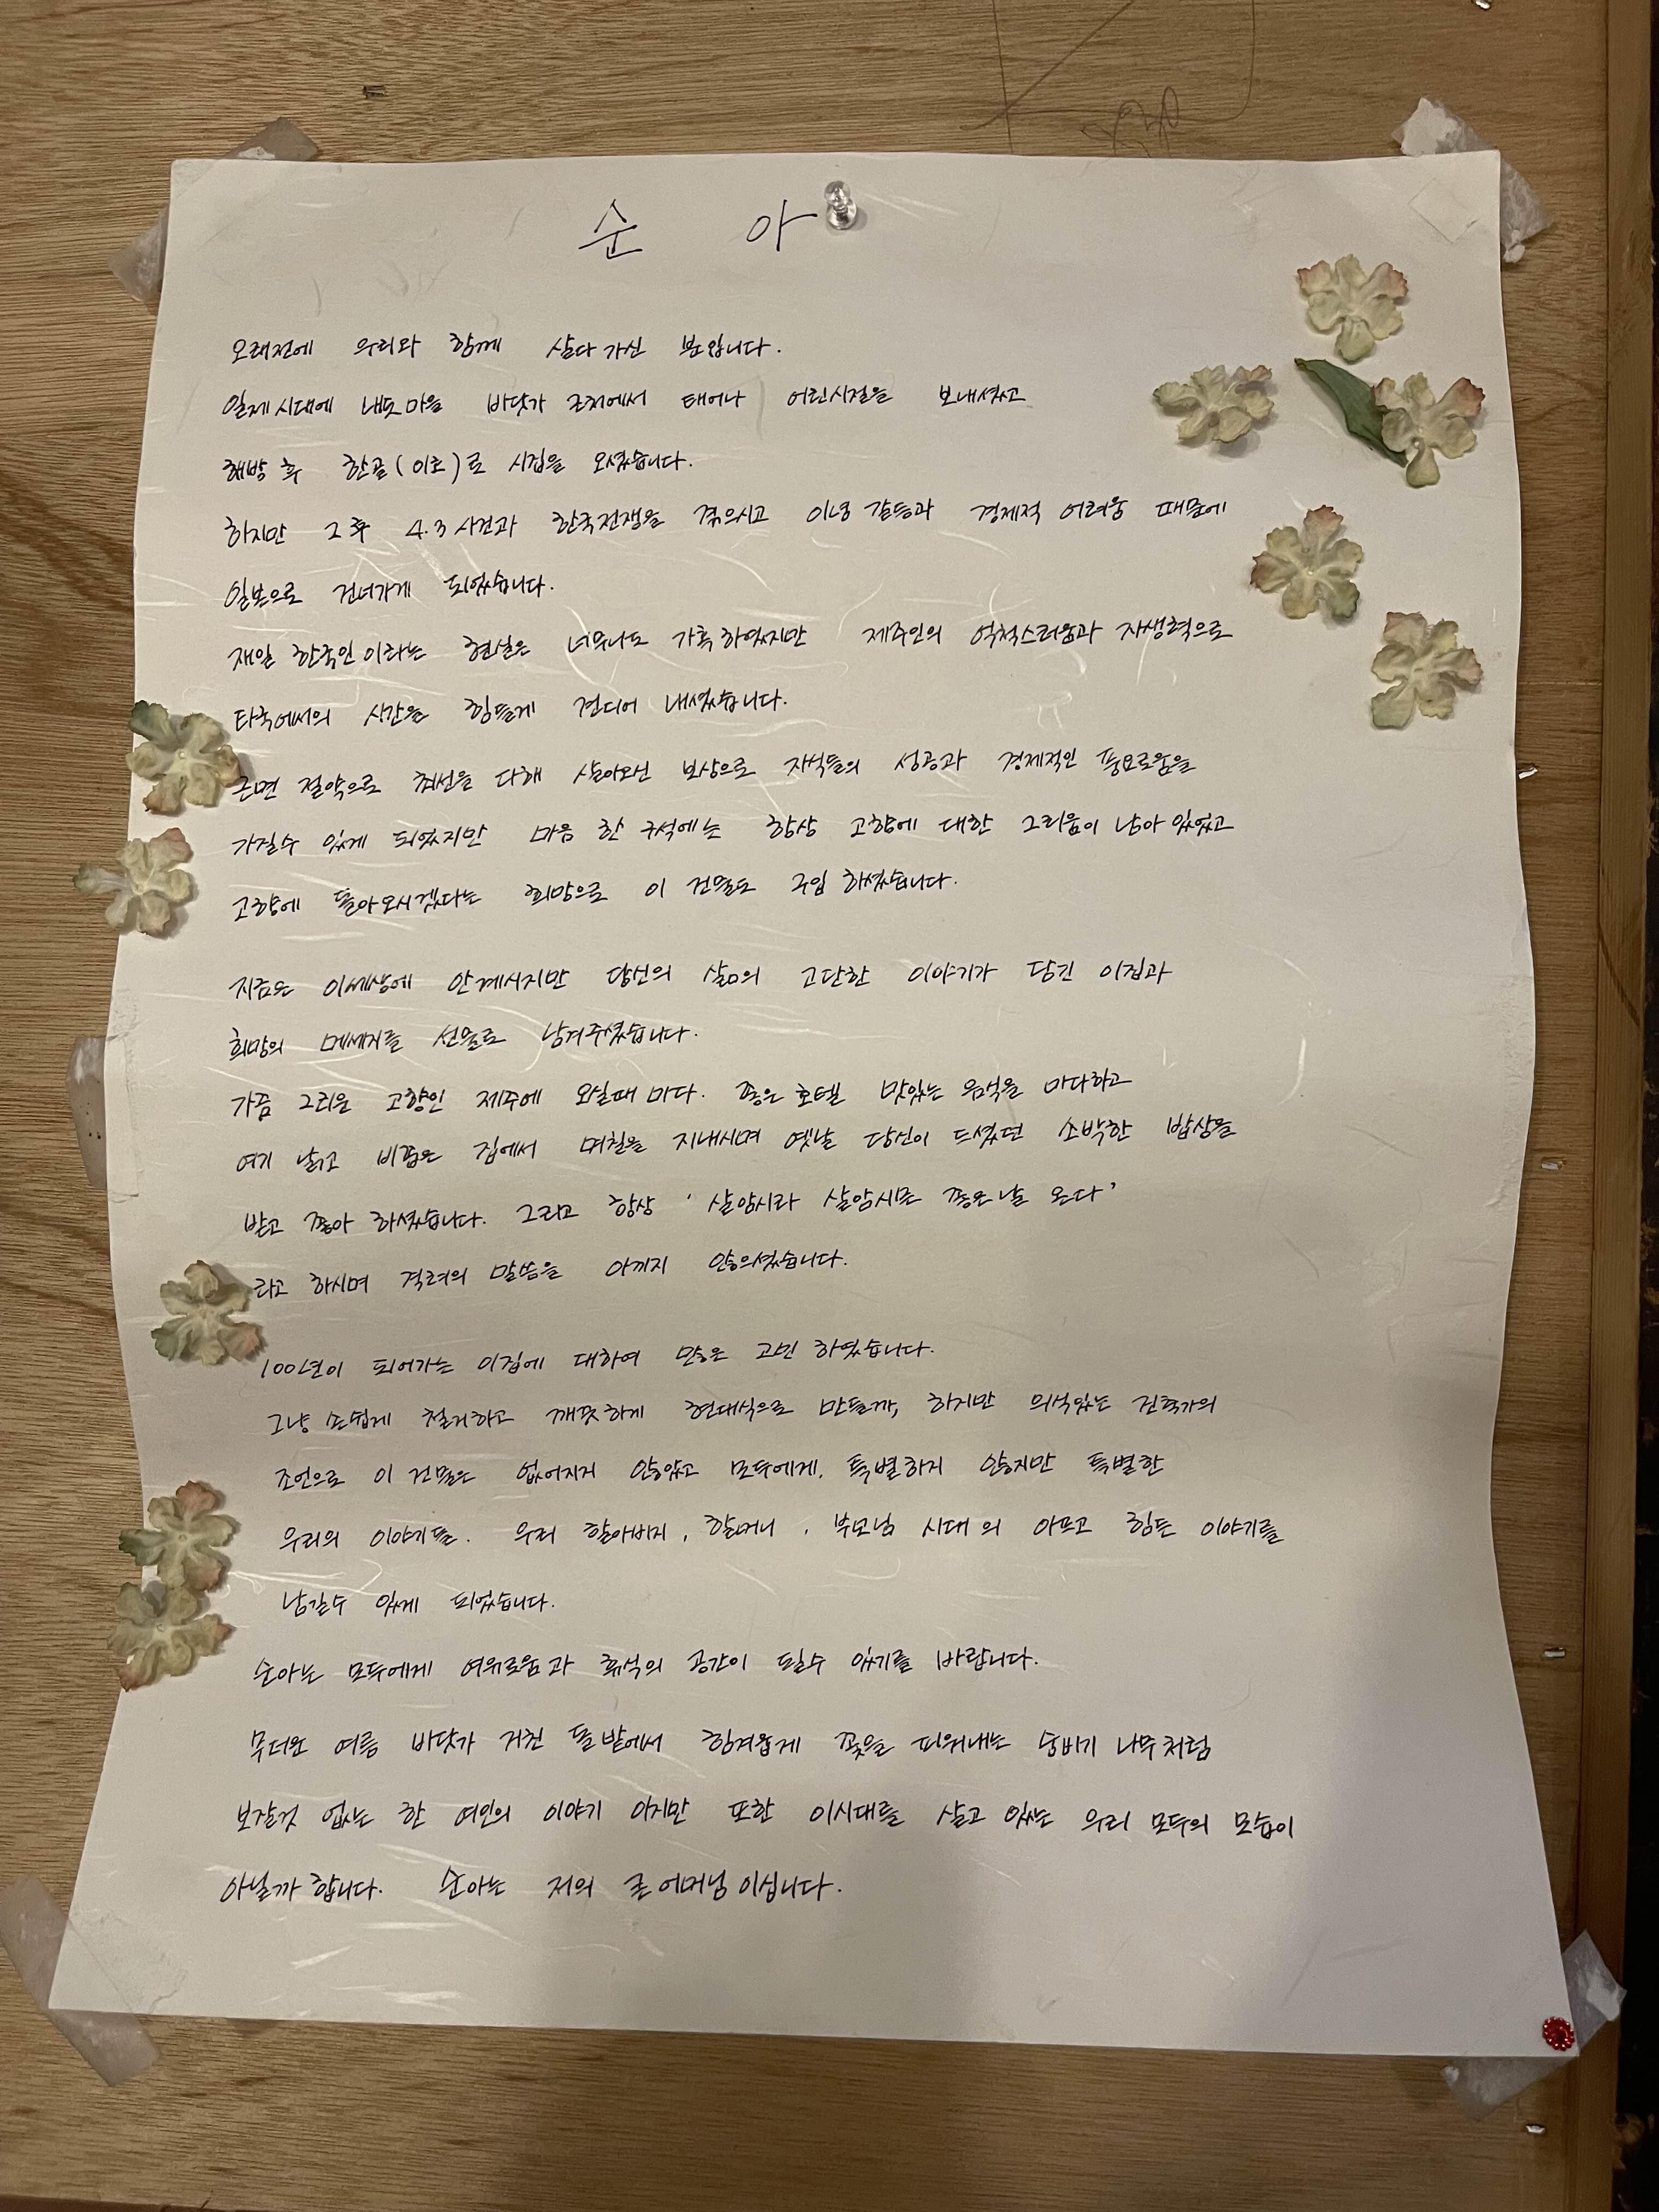 순 아
오래전에 우리와 함께 살다 가신 분입니다.
일제 시대에 내도 마을 바닷가 근처에서 태어나 어린시절을 보내셨고
해방 후 한골(이호)로 시집을 오셨습니다.
하지만 그 후 4.3 사건과 한국전쟁을 겪으시고 이념 갈등과 경제적 어려움 때문에
일본으로 건너가게 되었습니다.
재일 한국인 이라는 현실은 너무나도 가혹 하였지만 제주인의 억척스러움과 자생력으로
타국에서의 시간을 힘들게 견디어 내셨습니다.
근면 절약으로 최선을 다해 살아오신 보상으로 자식들의 성공과 경제적인 풍요로움을
가질수 있게 되었지만 마음 한 구석에는 항상 고향에 대한 그리움이 남아 있었고
고향에 돌아오시겠다는 희망으로 이 건물도 구입 하셨습니다.
지금은 이세상에 안계시지만 당신의 삶의 고단한 이야기가 담긴 이집과
희망의 메세지를 선물로 남겨주셨습니다.
가끔 그리운 고향인 제주에 오실때 마다. 좋은 호텔 맛있는 음식을 마다하고
여기 낡고 비좁은 집에서 며칠을 지내시며 옛날 당신이 드셨던 소박한 밥상을
받고 좋아 하셨습니다. 그리고 항상 ' 살암시라 살암시믄 좋은날 온다 '
라고 하시며 격려의 말씀을 아끼지 않으셨습니다.
100년이 되어가는 이집에 대하여 많은 고민 하였습니다.
그냥 손쉽게 철거하고 깨끗하게 현대식으로 만들까, 하지만 의식있는 건축가의
조언으로 이 건물은 없어지지 않았고 모두에게. 특별하지 않지만 특별한
우리의 이야기들. 우리 할아버지, 할머니, 부모님 시대의 아프고 힘든 이야기를
남길수 있게 되었습니다.
순아는 모두에게 여유로움과 휴식의 공간이 될수 있기를 바랍니다.
무더운 여름 바닷가 거친 돌밭에서 힘겨웁게 꽃을 피워내는 숨비기 나무처럼
보잘것 없는 한 여인의 이야기 이지만 또한 이시대를 살고 있는 우리 모두의 모습이
아닐까 합니다. 순아는 저의 큰어머님 이십니다.